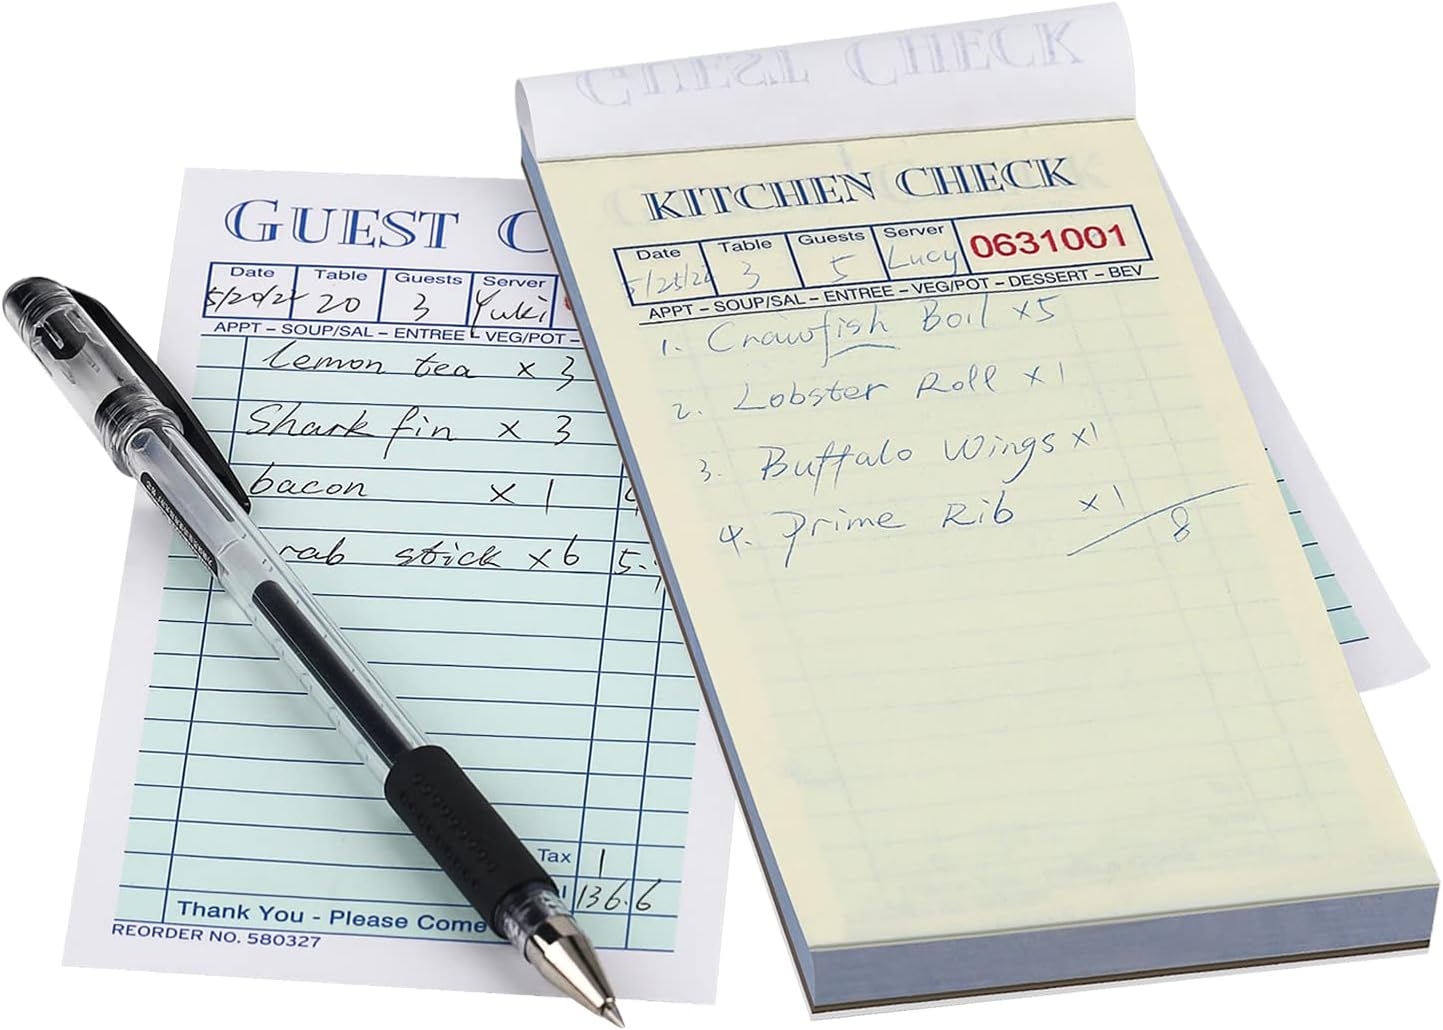 GUEST CHECK
GUEST C
Date Table Guests Server
5/20/2 20 3 Yuki
APPT – SOUP/SAL – ENTREE – VEG/POT –
Lemon tea x 3
Shark fin x 3
bacon x 1
rab stick x 6 5.
Tax 1
136.6
Thank You - Please Come
REORDER NO. 580327
KITCHEN CHECK
Date Table Guests Server 0631001
5/25/22 3 5 Lucy
APPT – SOUP/SAL – ENTREE – VEG/POT – DESSERT – BEV
1. Crawfish Boil x5
2. Lobster Roll x1
3. Buffalo Wings x1
4. Prime Rib x1
8